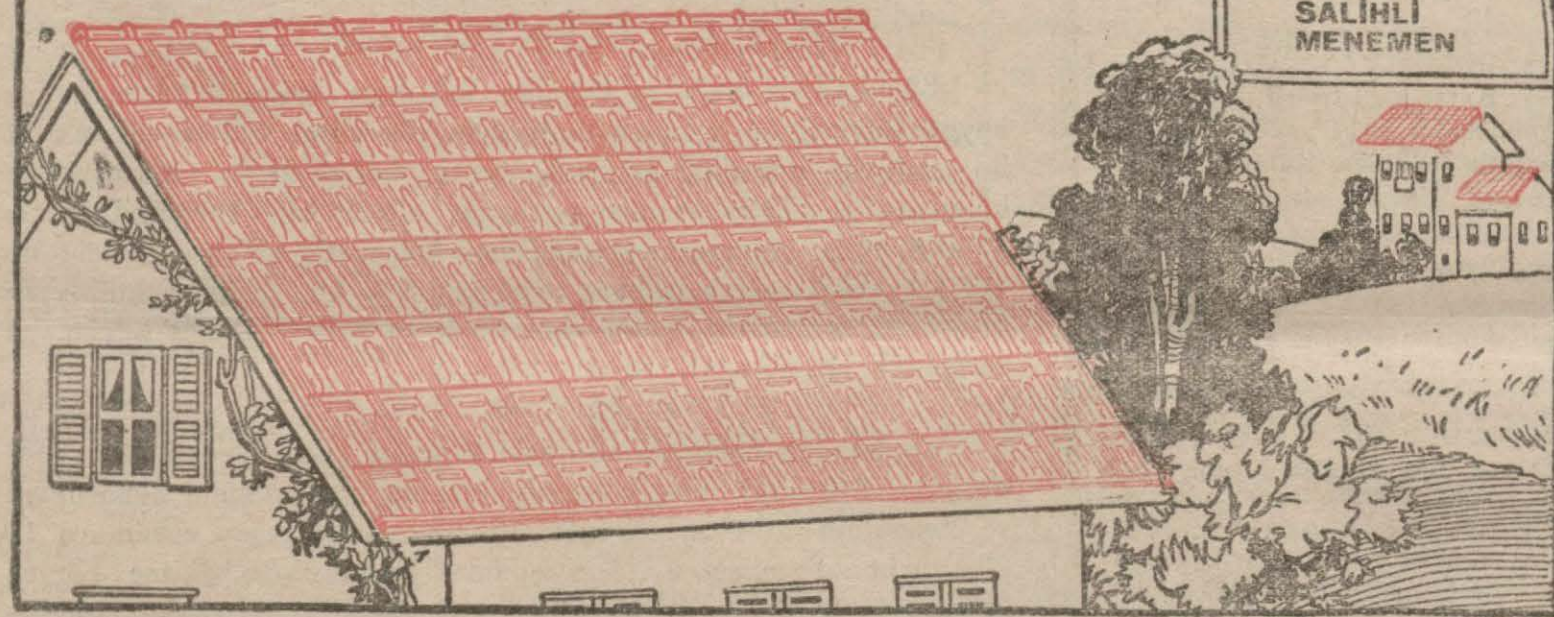 SALİHLİ
MENEMEN